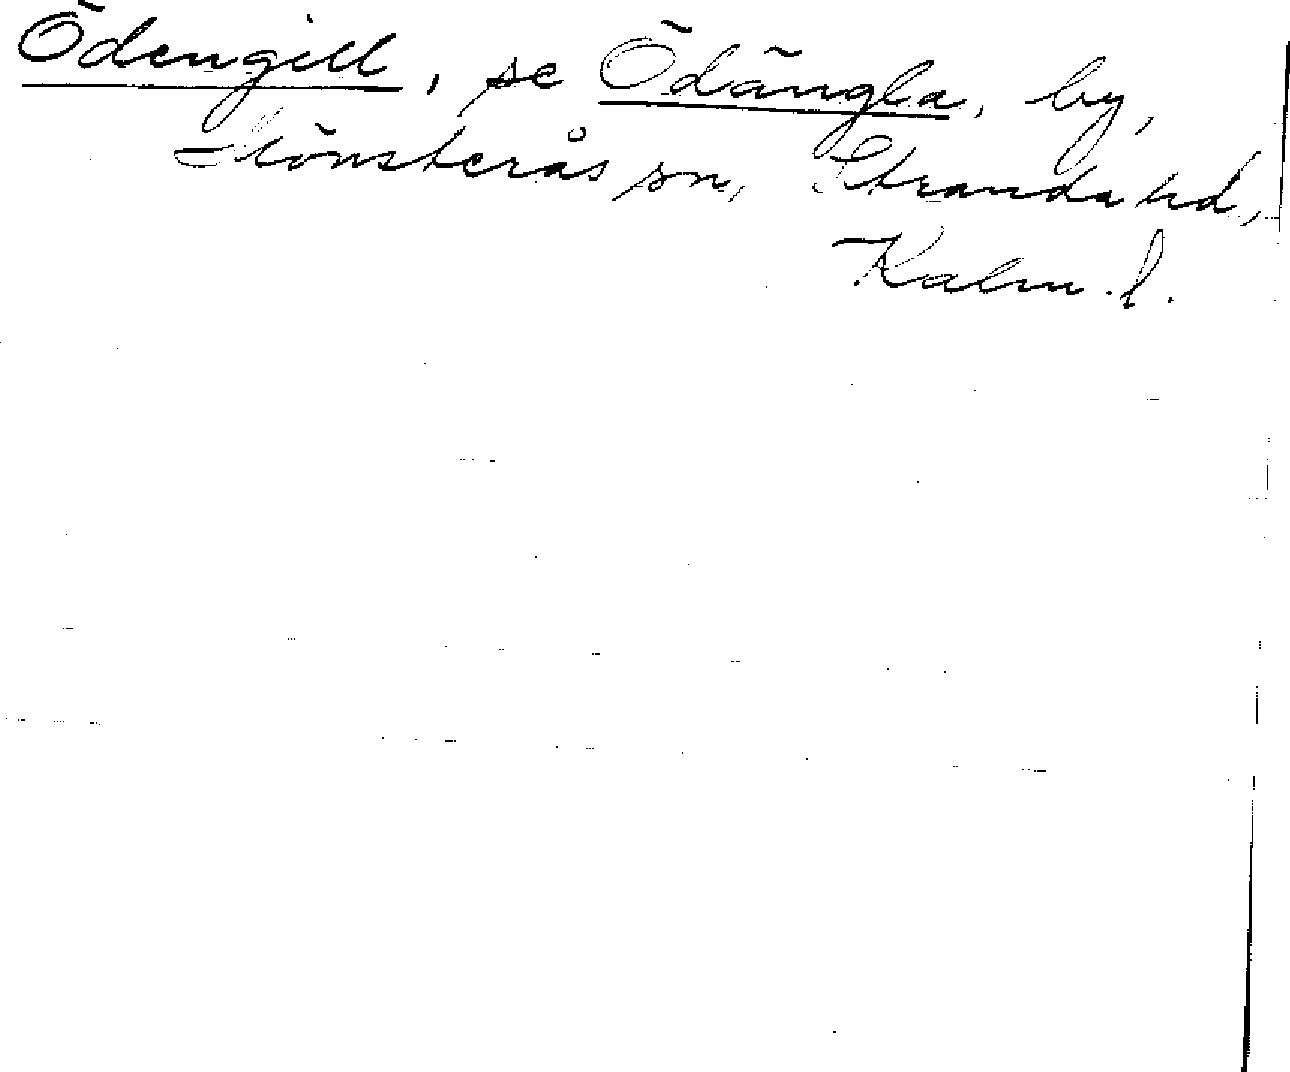 Ödengill, se Ödängla, by,
Mönsterås sn, Stranda hd,
Kalm. l.